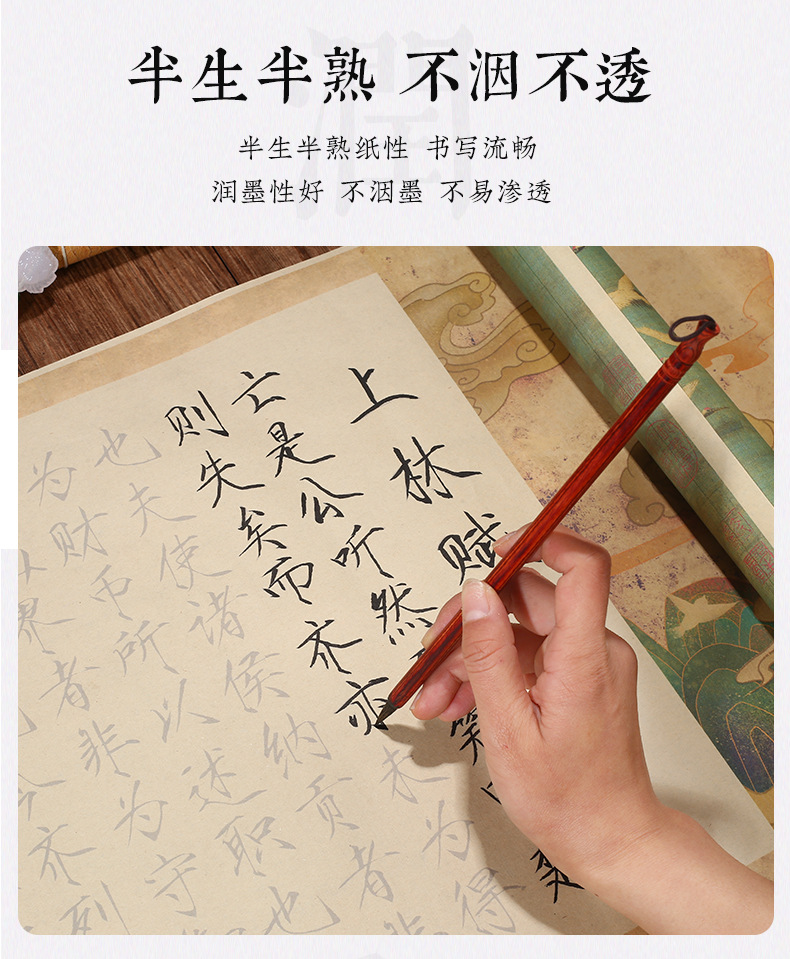 潤
半生半熟 不洇不透
半生半熟纸性 书写流畅
润墨性好 不洇墨 不易渗透
上林赋
亡是公听然笑楚
则失矣而齐亦未为得
也夫使诸侯纳贡者非
为财币所以述职也
界者非为守
齐列